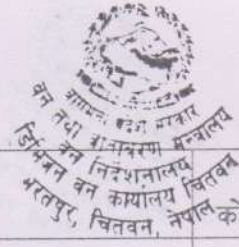 बागमती प्रदेश सरकार
वन तथा वातावरण मन्त्रालय
वन निर्देशनालय
डिभिजन वन कार्यालय चितवन
भरतपुर, चितवन, नेपाल
को